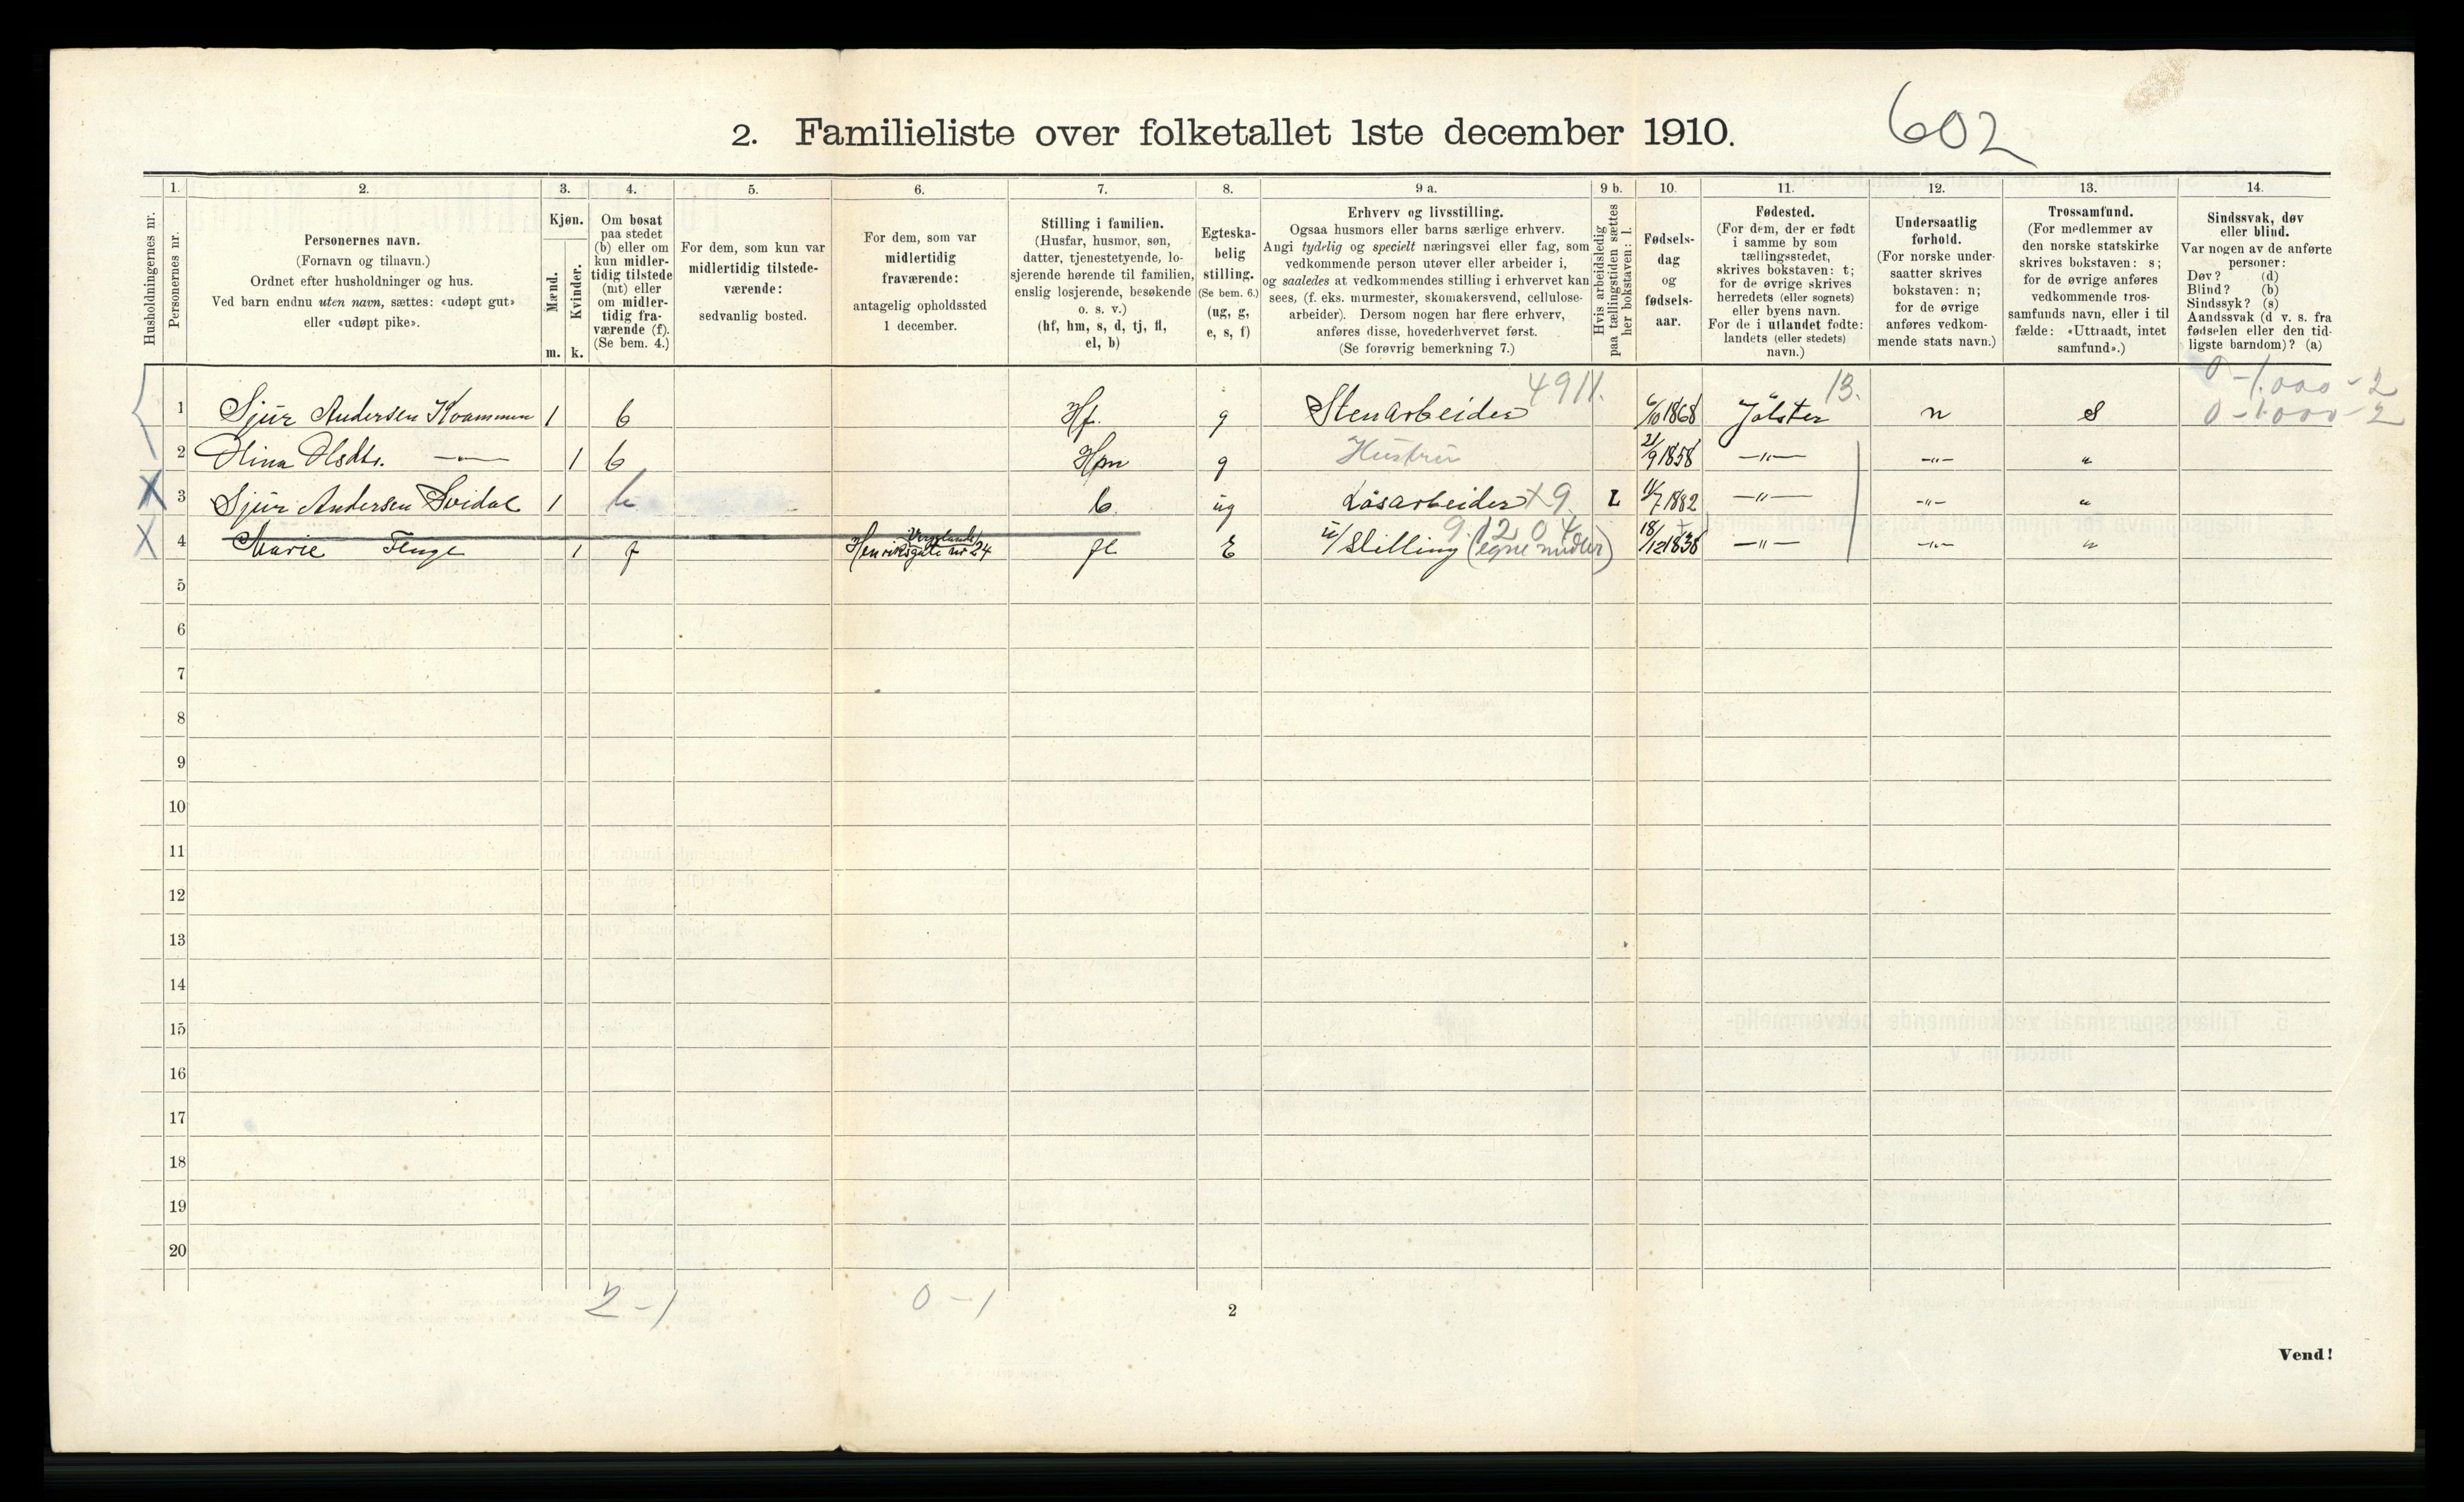 602
2. Familieliste over folketallet 1ste december 1910.
Husholdningernes nr.
1. Personernes nr.
2. Personernes navn. (Fornavn og tilnavn.) Ordnet efter husholdninger og hus. Ved barn endnu uten navn, sættes: «udøpt gut» eller «udøpt pike».
3. Kjøn. Mænd. m. Kvinder. k.
4. Om bosat paa stedet (b) eller om kun midlertidig tilstede (mt) eller om midlertidig fraværende (f). (Se bem. 4.)
5. For dem, som kun var midlertidig tilstedeværende: sedvanlig bosted.
6. For dem, som var midlertidig fraværende: antagelig opholdssted 1 december.
7. Stilling i familien. (Husfar, husmor, søn, datter, tjenestetyende, losjerende hørende til familien, enslig losjerende, besøkende o. s. v.) (hf, hm, s, d, tj, fl, el, b)
8. Egteskabelig stilling. (Se bem. 6.) (ug, g, e, s, f)
9 a. Erhverv og livsstilling. Ogsaa husmors eller barns særlige erhverv. Angi tydelig og specielt næringsvei eller fag, som vedkommende person utøver eller arbeider i, og saaledes at vedkommendes stilling i erhvervet kan sees, (f. eks. murmester, skomakersvend, cellulosearbeider). Dersom nogen har flere erhverv, anføres disse, hovederhvervet først. (Se forøvrig bemerkning 7.)
9 b. Hvis arbeidsledig paa tællingstiden sættes her bokstaven: l.
10. Fødselsdag og fødselsaar.
11. Fødested. (For dem, der er født i samme by som tællingsstedet, skrives bokstaven: t; for de øvrige skrives herredets (eller sognets) eller byens navn. For de i utlandet fødte: landets (eller stedets) navn.)
12. Undersaatlig forhold. (For norske undersaatter skrives bokstaven: n; for de øvrige anføres vedkommende stats navn.)
13. Trossamfund. (For medlemmer av den norske statskirke skrives bokstaven: s; for de øvrige anføres vedkommende trossamfunds navn, eller i tilfælde: «Uttraadt, intet samfund».)
14. Sindssvak, døv eller blind. Var nogen av de anførte personer: Døv? (d) Blind? (b) Sindssyk? (s) Aandssvak (d. v. s. fra fødselen eller den tidligste barndom)? (a)
4911. 13. 0-1.000-2
1 Sjur Andersen Kvammen 1 b Hf. g Stenarbeider 6/10 1868 Jølster n S 0-1.000-2
2 Olina Olsdtr. —„— 1 b Hm g Hustru 21/9 1858 —„— —„— „
3 Sjur Andersen Svidal 1 b b ug Løsarbeider X9. L 11/7 1882 —„— —„— „
9.1204
4 Marie Fluge 1 f Henrik Vergelands gate nr 24 fl E u/ Stilling (egne midler) 18/12 1838 —„— —„— „
5
6
7
8
9
10
11
12
13
14
15
16
17
18
19
20
2-1 0-1
2
Vend!